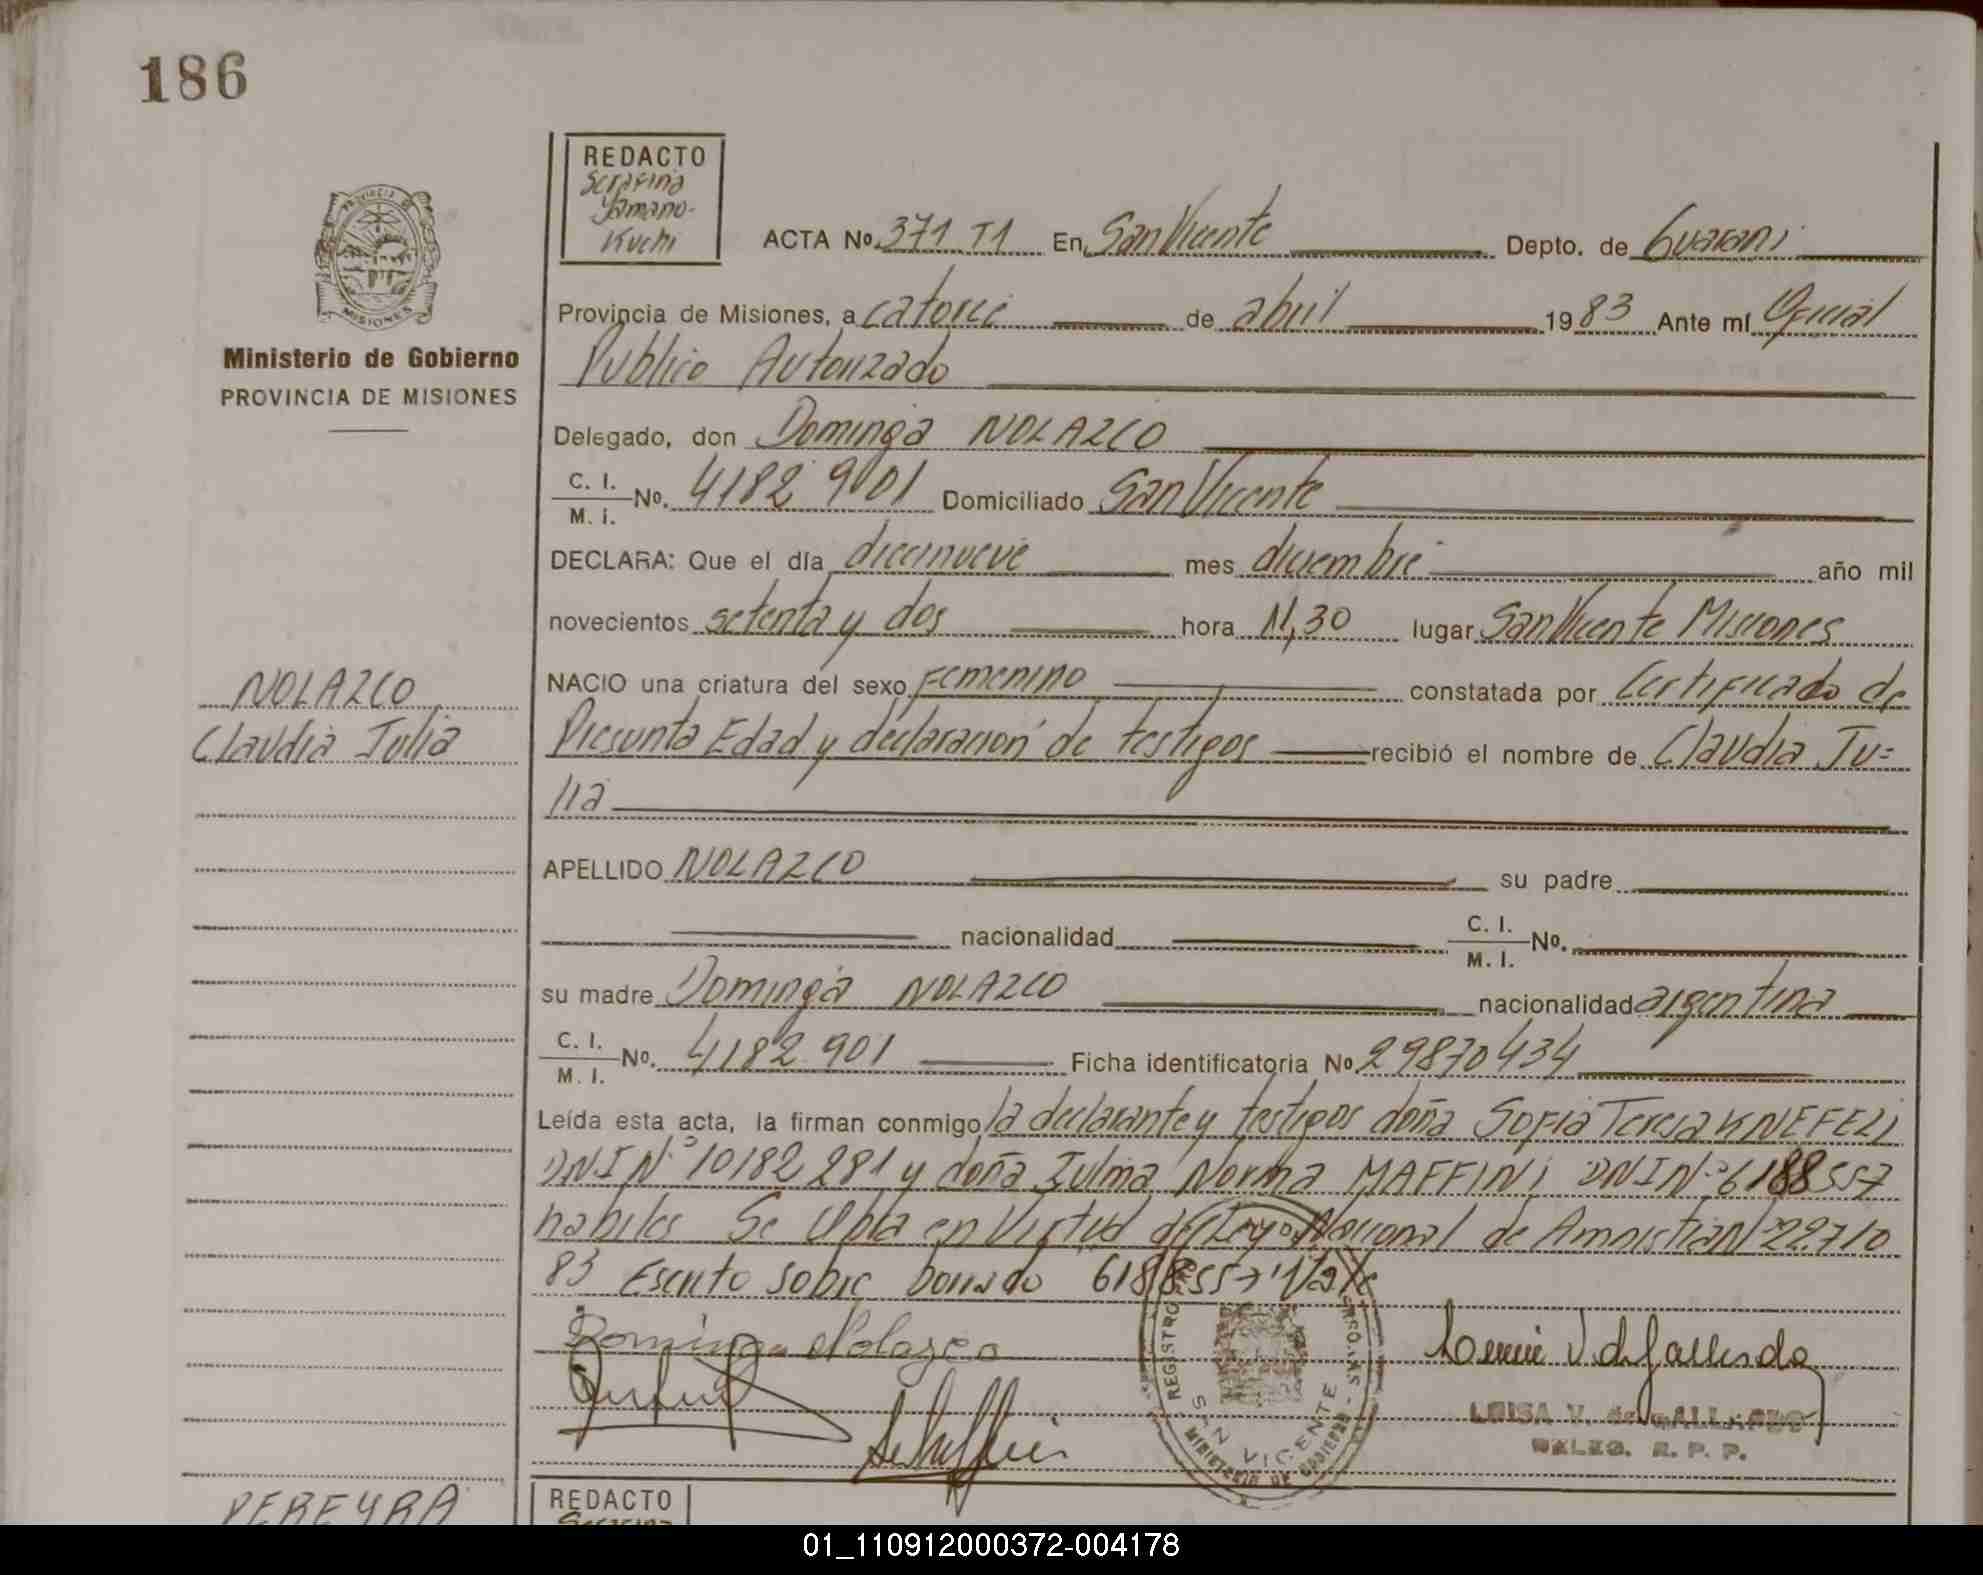 186
REDACTO
Serafina
Yamano-
Kuchi
ACTA No. 371 T1 En San Vicente Depto. de Guarani
Provincia de Misiones, a catorce de abril 1983 Ante mí Oficial
Publico Autorizado
Ministerio de Gobierno
PROVINCIA DE MISIONES
Delegado, don Dominga NOLAZCO
C. I.
M. I. No. 4182 901 Domiciliado San Vicente
DECLARA: Que el día diecinueve mes diciembre año mil
novecientos setenta y dos hora 11,30 lugar San Vicente Misiones
NOLAZCO
Claudia Julia
NACIO una criatura del sexo Femenino constatada por Certificado de
Presunta Edad y declaracion de testigos recibió el nombre de Claudia Ju=
lia
APELLIDO NOLAZCO su padre
nacionalidad C. I.
M. I. No.
su madre Dominga NOLAZCO nacionalidad argentina
C. I.
M. I. No. 4182 901 Ficha identificatoria No 29870434
Leída esta acta, la firman conmigo la declarante y testigos doña Sofia Teresa KNEFELI
DNI N.º 10182 281 y doña Zulma Norma MAFFINI DNI N.º 6188557
habiles Se Obla en Virtud de Ley Nacional de Amnistia Nº 22710
83 Escrito sobre borrado 6188557 Vale
Dominga Nolazco
REGISTRO
SAN VICENTE
MINISTERIO DE GOBIERNO
LUISA V. de GALLARDO
DELEG. R. P. P.
PEREYRA
REDACTO
Serafina
01_110912000372-004178